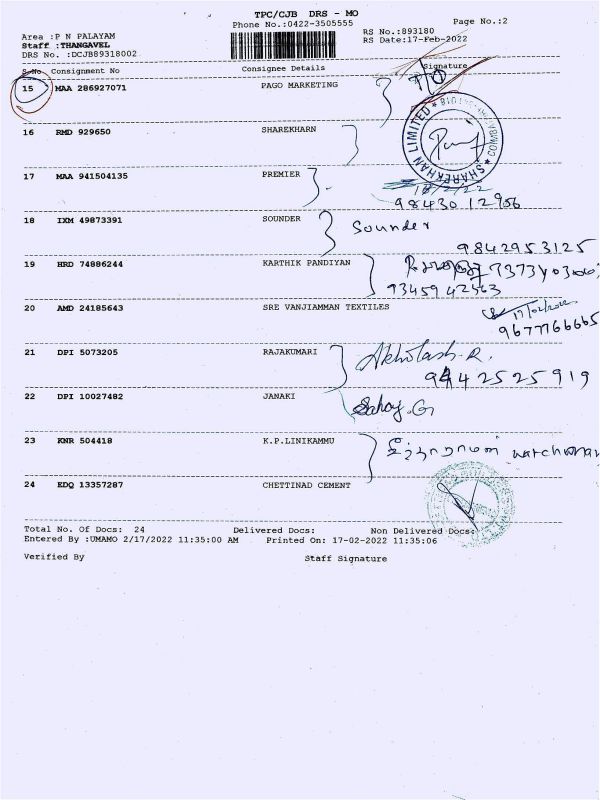 TPC/CJB DRS - MO
Phone No.:0422-3505555
Page No.:2
Area :P N PALAYAM
Staff :THANGAVEL
DRS No. :DCJB89318002
RS No.:893180
RS Date:17-Feb-2022
S.No. Consignment No Consignee Details Signature
15 MAA 286927071 PAGO MARKETING
16 RMD 929650 SHAREKHARN
SHAREKHAN LIMITED
17 MAA 941504135 PREMIER
18/2/22
98430 12956
18 IXM 49873391 SOUNDER Sounder
9842953125
19 HRD 74886244 KARTHIK PANDIYAN
9345942563
20 AMD 24185643 SRE VANJIAMMAN TEXTILES
9677766665
21 DPI 5073205 RAJAKUMARI Akhilash.R.
9442525919
22 DPI 10027482 JANAKI
23 KNR 504418 K.P.LINIKAMMU
24 EDQ 13357287 CHETTINAD CEMENT
Total No. Of Docs: 24 Delivered Docs: Non Delivered Docs:
Entered By :UMAMO 2/17/2022 11:35:00 AM Printed On: 17-02-2022 11:35:06
Verified By Staff Signature